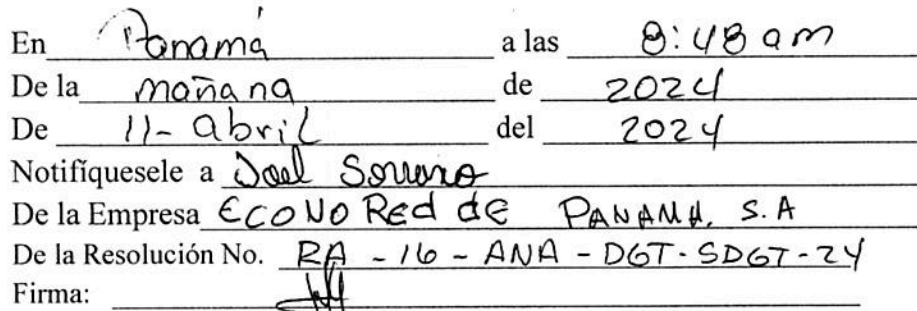 En Panamá a las 8:48 am
De la mañana de 2024
De 11- abril del 2024
Notifíquesele a Joel Serrano
De la Empresa ECONO Red de PANAMA, S.A
De la Resolución No. RA - 16 - ANA - DGT - SDGT - 24
Firma: